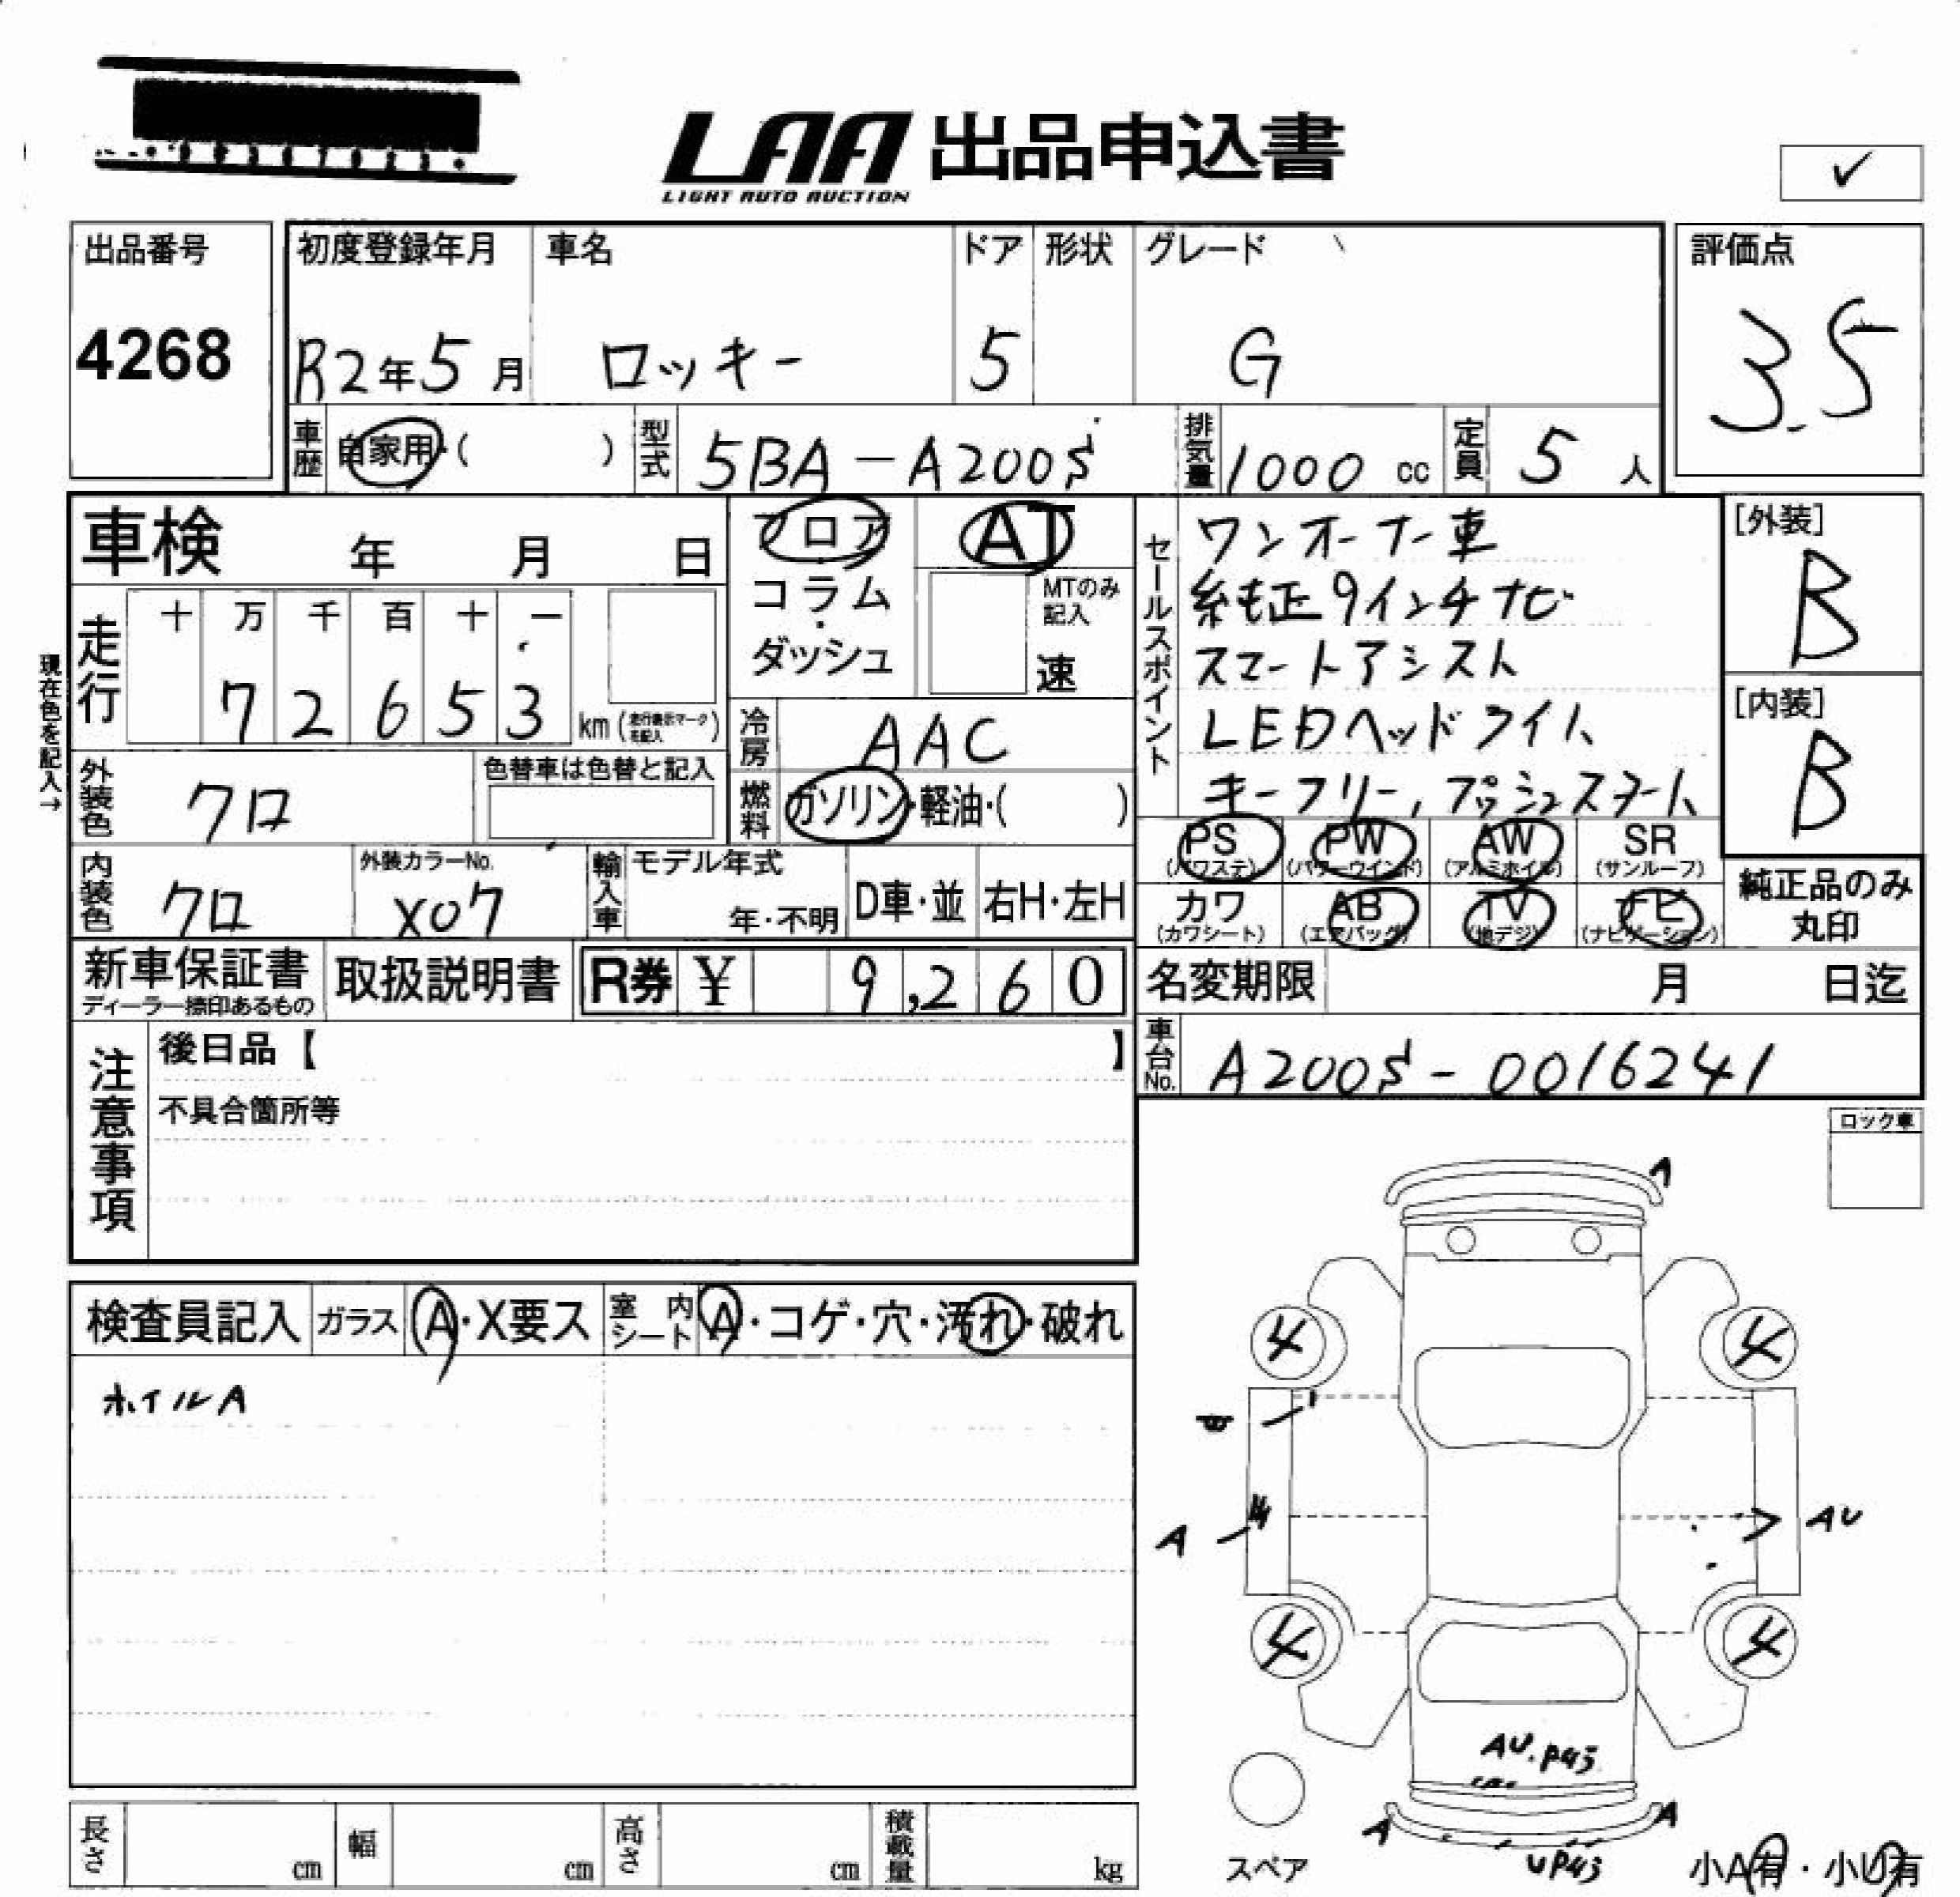 LAA 出品申込書
LIGHT AUTO AUCTION
✓
出品番号
4268
初度登録年月 車名 ドア 形状 グレード
R2年5月 ロッキー 5 G
評価点
3.5
車歴 自家用・( ) 型式 5BA-A200S 排気量 1000 cc 定員 5 人
車検 年 月 日
フロア
コラム
・
ダッシュ
AT
MTのみ
記入
速
現在色を記入→
走行 十 万 千 百 十 一
7 2 6 5 3 km
冷房 AAC
外装色 クロ 色替車は色替と記入
燃料 ガソリン・軽油・( )
内装色 クロ 外装カラーNo. X07
輸入車 モデル年式 年・不明 D車・並 右H・左H
セールスポイント
ワンオーナー車
純正9インチナビ
スマートアシスト
LEDヘッドライト
キーフリー, プッシュスタート
[外装]
B
[内装]
B
PS (パワステ) PW (パワーウインド) AW (アルミホイル) SR (サンルーフ)
カワ (カワシート) AB (エアバッグ) TV (地デジ) ナビ (ナビゲーション)
純正品のみ
丸印
新車保証書
ディーラー捺印あるもの
取扱説明書 R券 ¥ 9,260
名変期限 月 日迄
車台No. A200S-0016241
注意事項
後日品【 】
不具合箇所等
ロック車
検査員記入 ガラス A・X要ス 室内シート A・コゲ・穴・汚れ・破れ
ホイルA
A
4 4
A AU
4 4
AU.P45
A A
UP43
スペア
小A有・小U有
長さ cm 幅 cm 高さ cm 積載量 kg